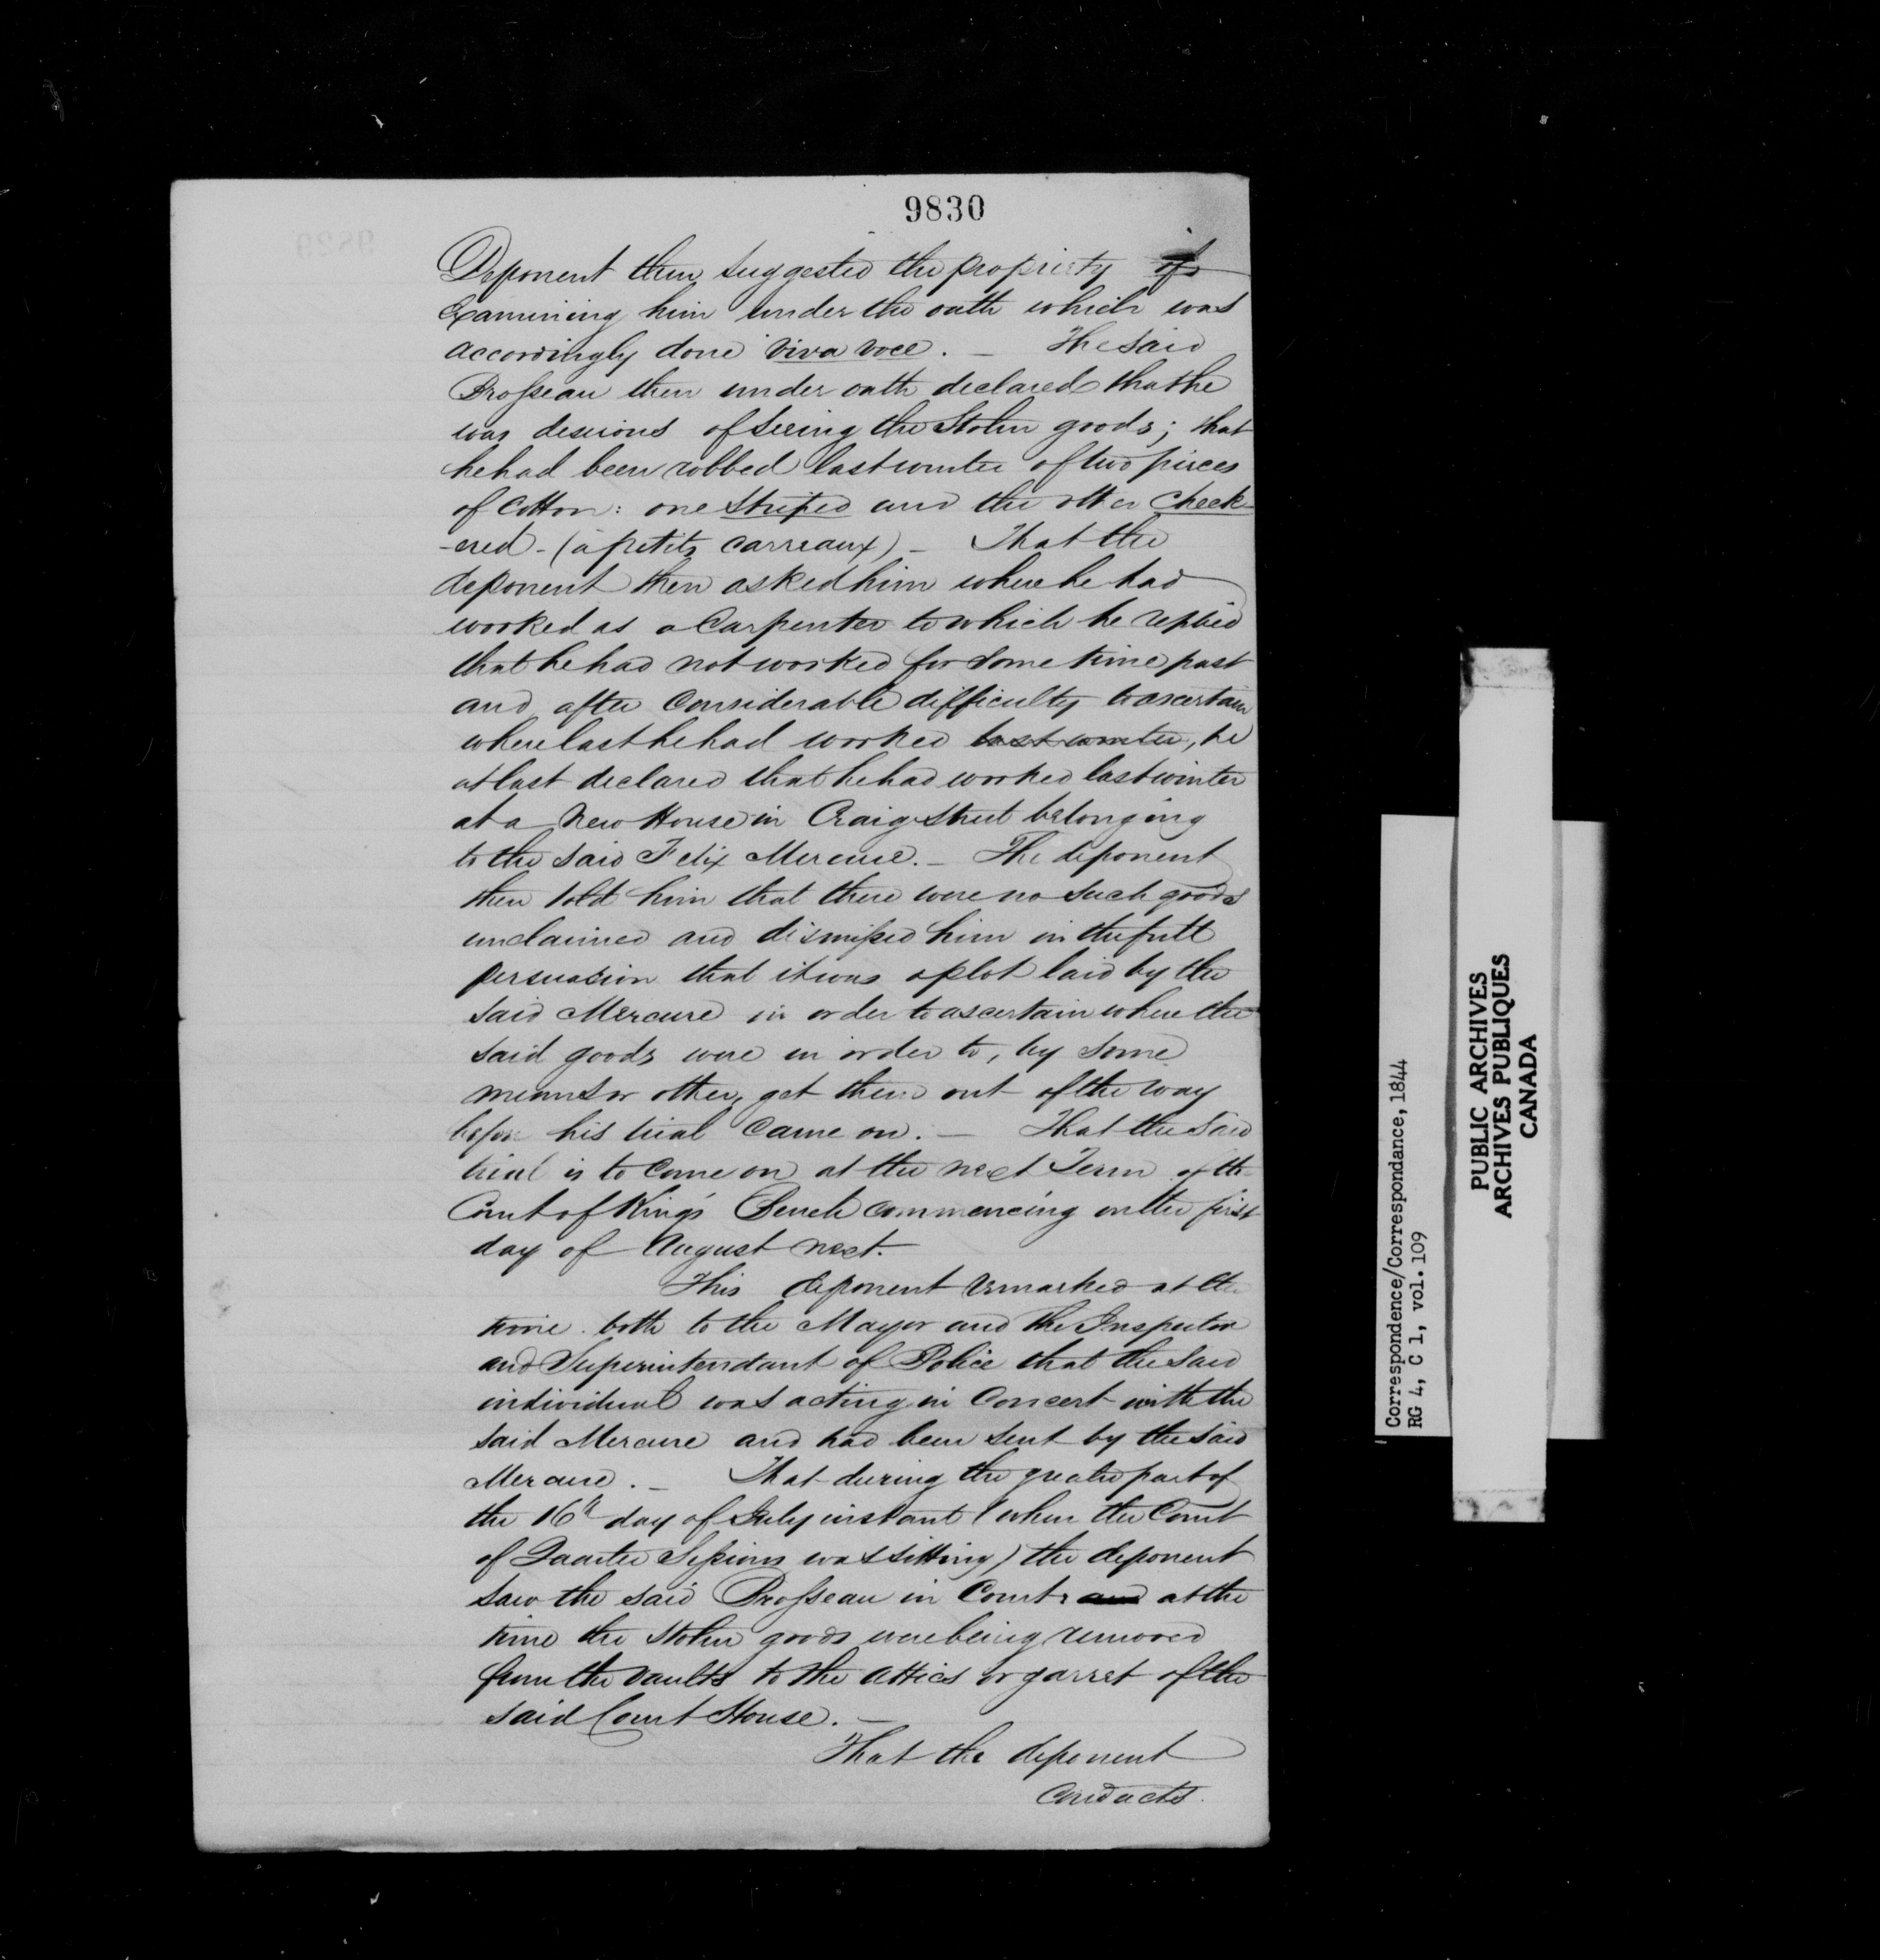 9830
Deponent then suggested the propriety of
Examining him under the oath which was
accordingly done viva voce. _ The said
Brosseau then under oath declared that he
was desirous of seeing the Stolen goods; that
he had been robbed last winter of two pieces
of Cotton: one Striped and the other Check-
-ered - (à petits carreaux) _ That the
deponent then asked him where he had
worked as a Carpenter to which he replied
that he had not worked for some time past
and after Considerable difficulty to ascertain
where last he had worked last winter, he
at last declared that he had worked last winter
at a New House in Craig Street belonging
to the said Felix Mercure. _ The deponent
then told him that there were no such goods
unclaimed and dismissed him in the full
persuasion that it was a plot laid by the
said Mercure in order to ascertain where the
said goods were in order to, by some
means or other, get them out of the way
before his trial Came on. _ That the said
trial is to Come on at the next Term of the
Court of King's Bench commencing on the first
day of August next.
This deponent remarked at the
time both to the Mayor and the Inspector
and Superintendant of Police that the said
individual was acting in Concert with the
said Mercure and had been sent by the said
Mercure. _ That during the greater part of
the 16th day of July instant (when the Court
of Quarter Sessions was sitting) the deponent
saw the said Brosseau in Court and at the
time the stolen goods were being removed
from the vaults to the attics or garret of the
said Court House. _
That the deponent
Conducts.
Correspondence/Correspondance, 1844
RG 4, C 1, vol. 109
PUBLIC ARCHIVES
ARCHIVES PUBLIQUES
CANADA